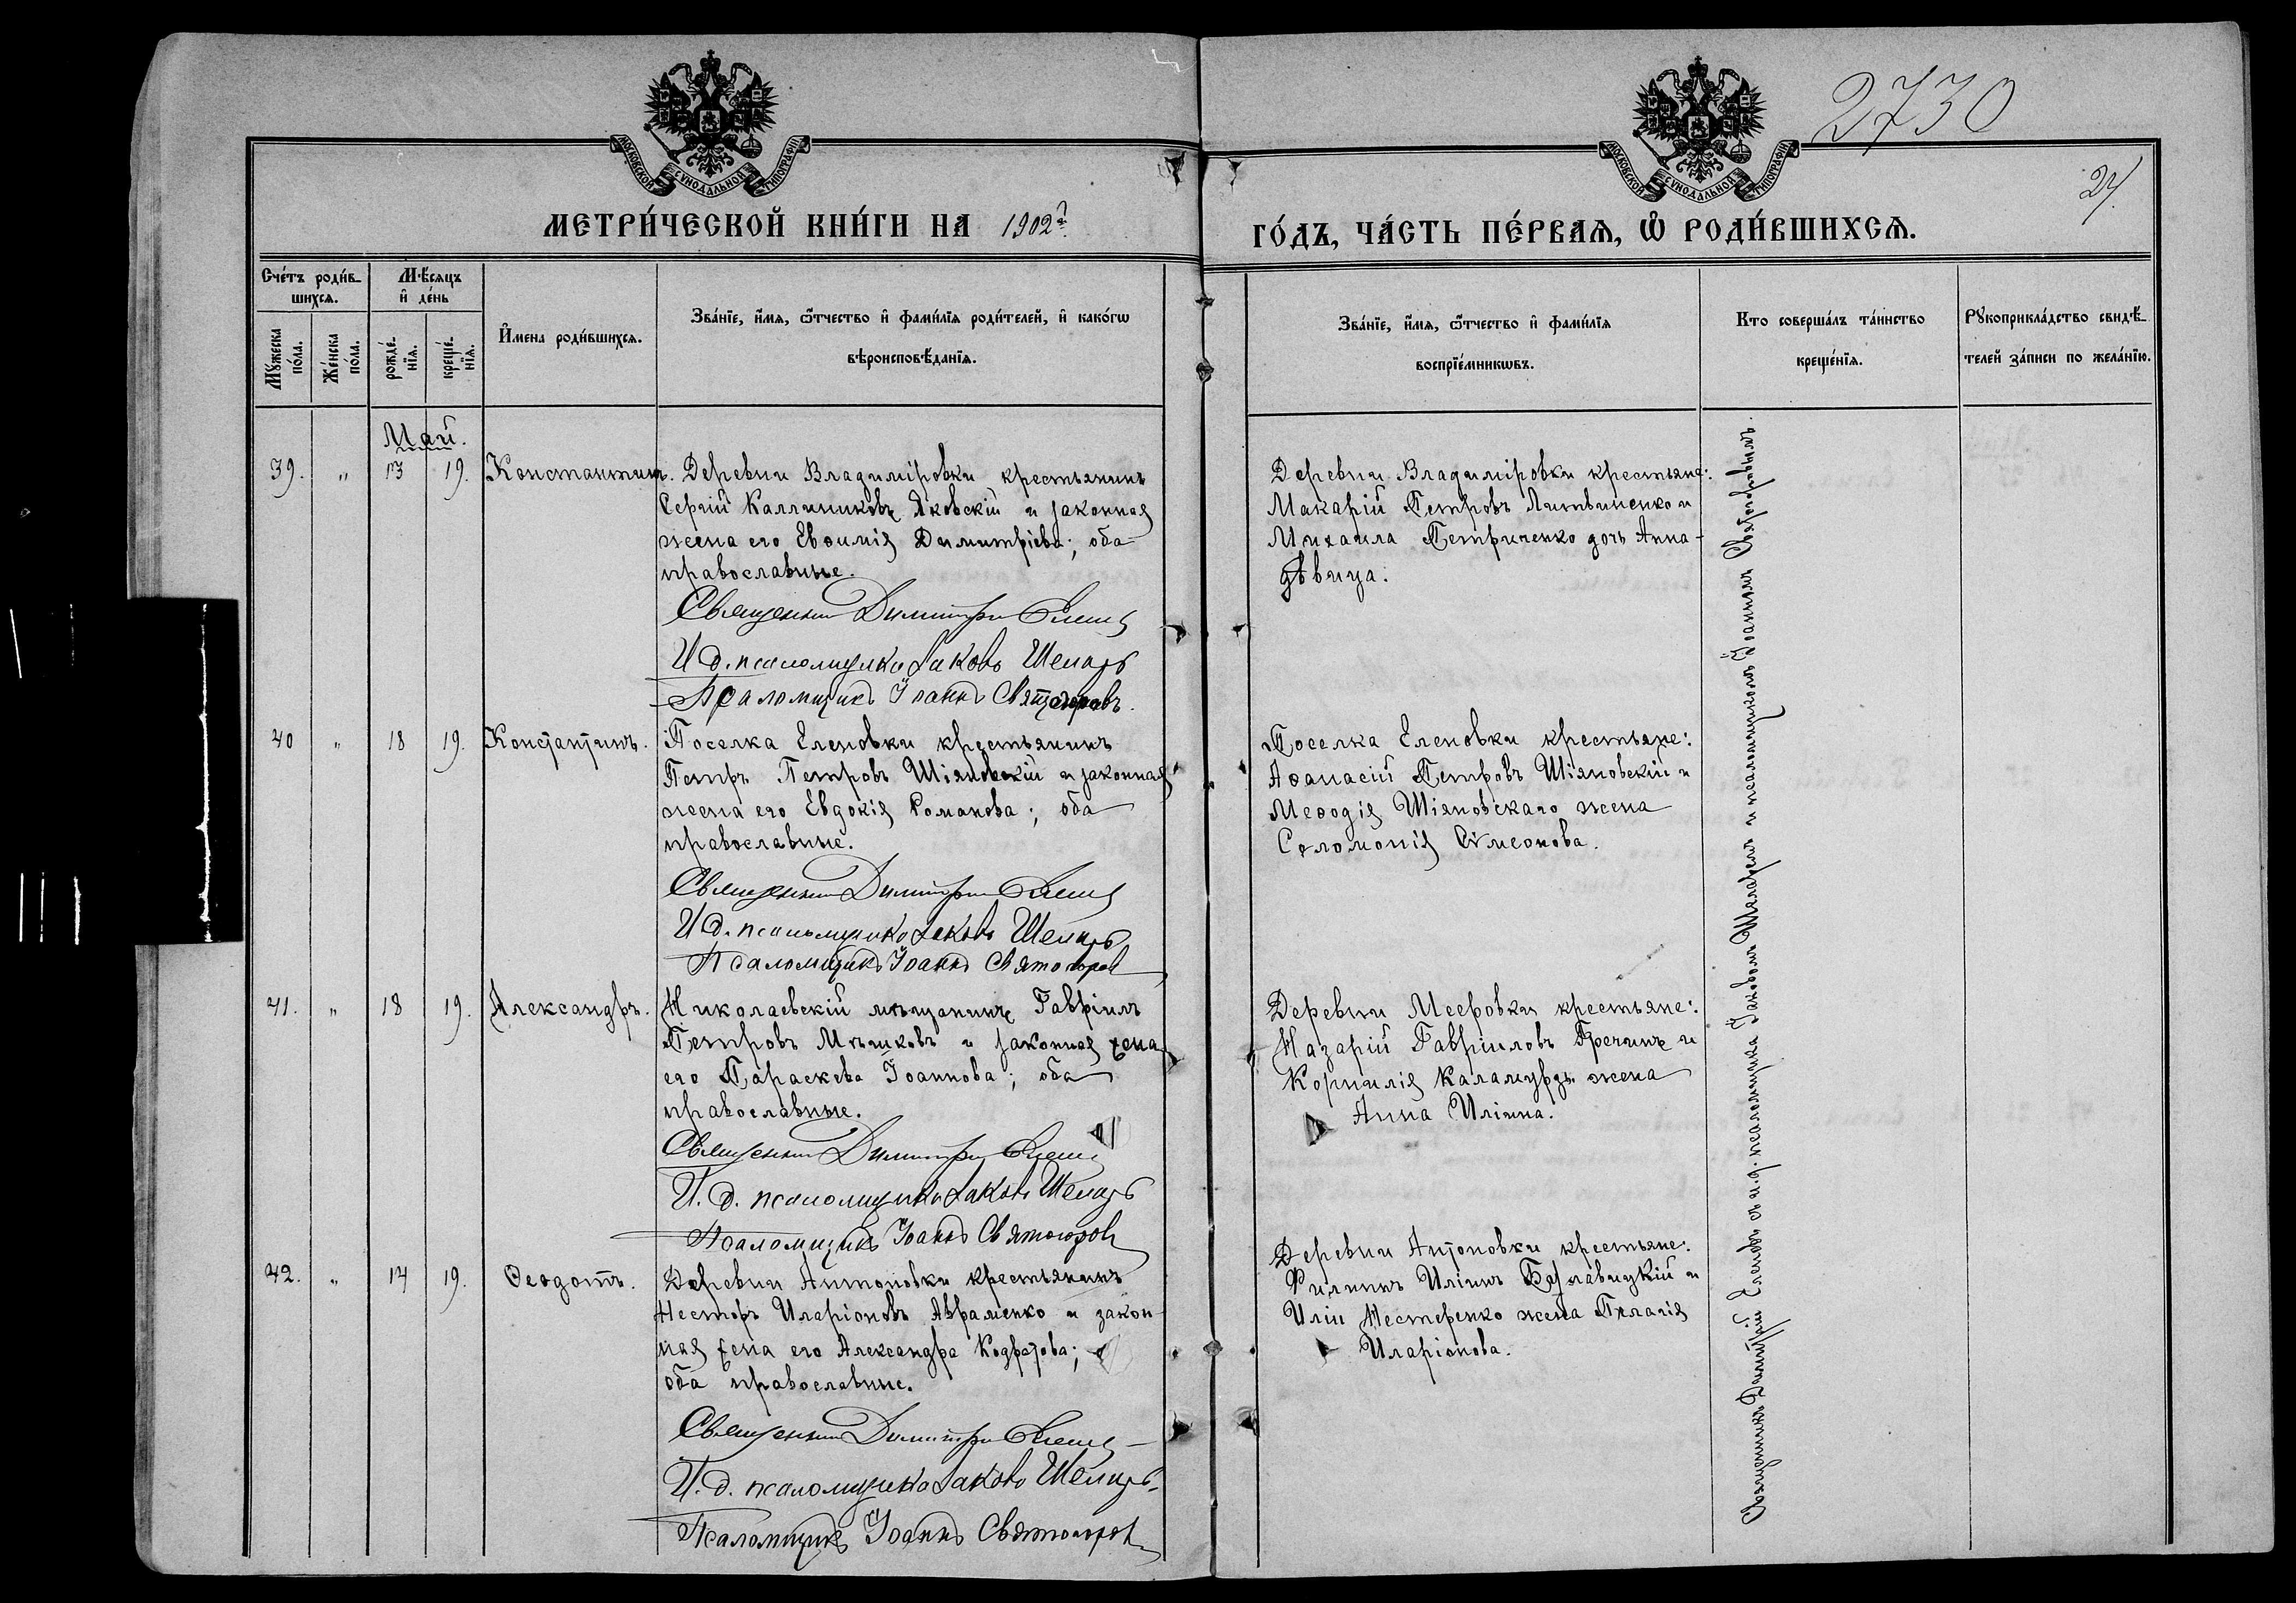 2730
24.
МОСКОВСКОЙ СѴНОДАЛЬНОЙ ТИПОГРАФІИ
МОСКОВСКОЙ СѴНОДАЛЬНОЙ ТИПОГРАФІИ
МЕТРИ́ЧЕСКОЙ КНИ́ГИ НА 1902 ГО́ДЪ, ЧА́СТЬ ПЕ́РВАѦ, Ѡ҆ РОДИ́ВШИХСѦ.
Сче́тъ роди́в-
шихсѧ.
Мꙋ́жеска
по́ла.
Же́нска
по́ла.
Мѣ́сѧцъ
и҆ де́нь
рожде́-
нїѧ.
креще́-
нїѧ.
И҆мена роди́вшихсѧ.
Зва́нїе, и҆́мѧ, ѻ҆́тчество и҆ фами́лїѧ роди́телей, и҆ како́гѡ
вѣроисповѣ́данїѧ.
Зва́нїе, и҆́мѧ, ѻ҆́тчество и҆ фами́лїѧ
воспрїе́мникѡвъ.
Кто соверша́лъ та́инство
креще́нїѧ.
Рꙋкоприкла́дство свидѣ́-
телей за́писи по жела́нїю.
Май.
39. " 13 19. Константинъ.
Деревни Владиміровки крестьянинъ
Сергій Каллиниковъ Яковскій и законная
жена его Евѳимія Димитріева; оба
православные.
Священник Димитрій
И. д. псаломщика Іаковъ
Псаломщикъ Іоаннъ Святогоровъ.
Деревни Владиміровки крестьяне:
Макарій Петровъ Литвиненко и
Михаила Петриченко дочь Анна -
дѣвица.
40 " 18 19. Константинъ.
Поселка Еленовки крестьянинъ
Петръ Петровъ Шіяновскій и законная
жена его Евдокія Романова; оба
православные.
Священник Димитрій
И. д. псаломщика Іаковъ
Псаломщикъ Іоаннъ Святогоров
Поселка Еленовки крестьяне:
Аѳанасій Петровъ Шіяновскій и
Меѳодія Шіяновскаго жена
Соломонія Сѵмеонова.
41. " 18 19. Александръ.
Николаевскій мѣщанинъ Гавріилъ
Петровъ Мѣшковъ и законная жена
его Параскева Іоаннова; оба
православные.
Священник Димитрій
И. д. псаломщика Іаковъ
Псаломщикъ Іоаннъ Святогоров
Деревни Мееровки крестьяне:
Назарій Гавріиловъ Гречинъ и
Корнилія Каламурдъ жена
Анна Иліина.
42. " 14 19. Ѳеодотъ.
Деревни Антоновки крестьянинъ
Несторъ Иларіоновъ Авраменко и закон-
ная жена его Александра Кодратова;
оба православные.
Священник Димитрій
И. д. псаломщика Іаковъ
Псаломщикъ Іоаннъ Святогоров
Деревни Антоновки крестьяне:
Филиппъ Иліинъ Бѣлавицкій и
Иліи Нестеренко жена Пелагія
Иларіонова.
Священникъ Димитрій съ и. д. псаломщика Іаковомъ и псаломщикомъ Іоанномъ Святогоровымъ.